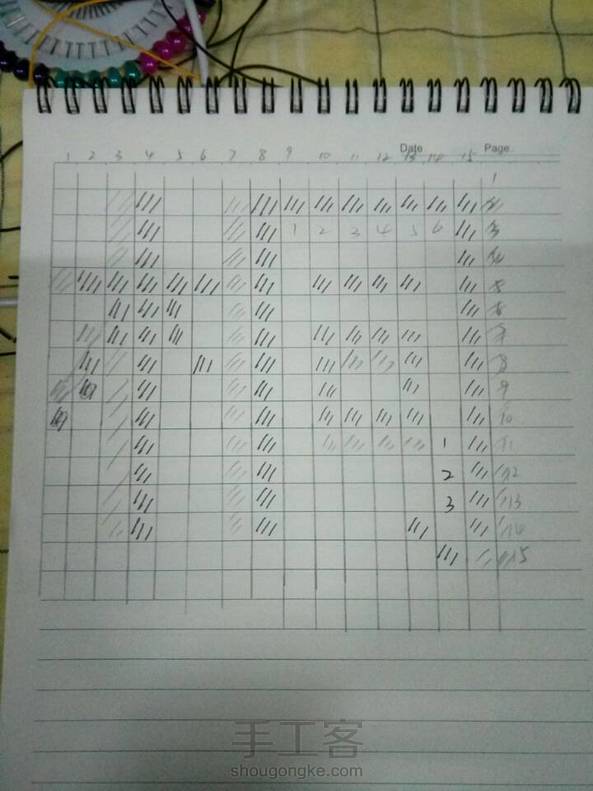 Date Page
1 2 3 4 5 6 7 8 9 10 11 12 13 14 15
1
1 2 3 4 5 6
8
9
10
1 11
2 12
3 13
14
15
手工客
shougongke.com